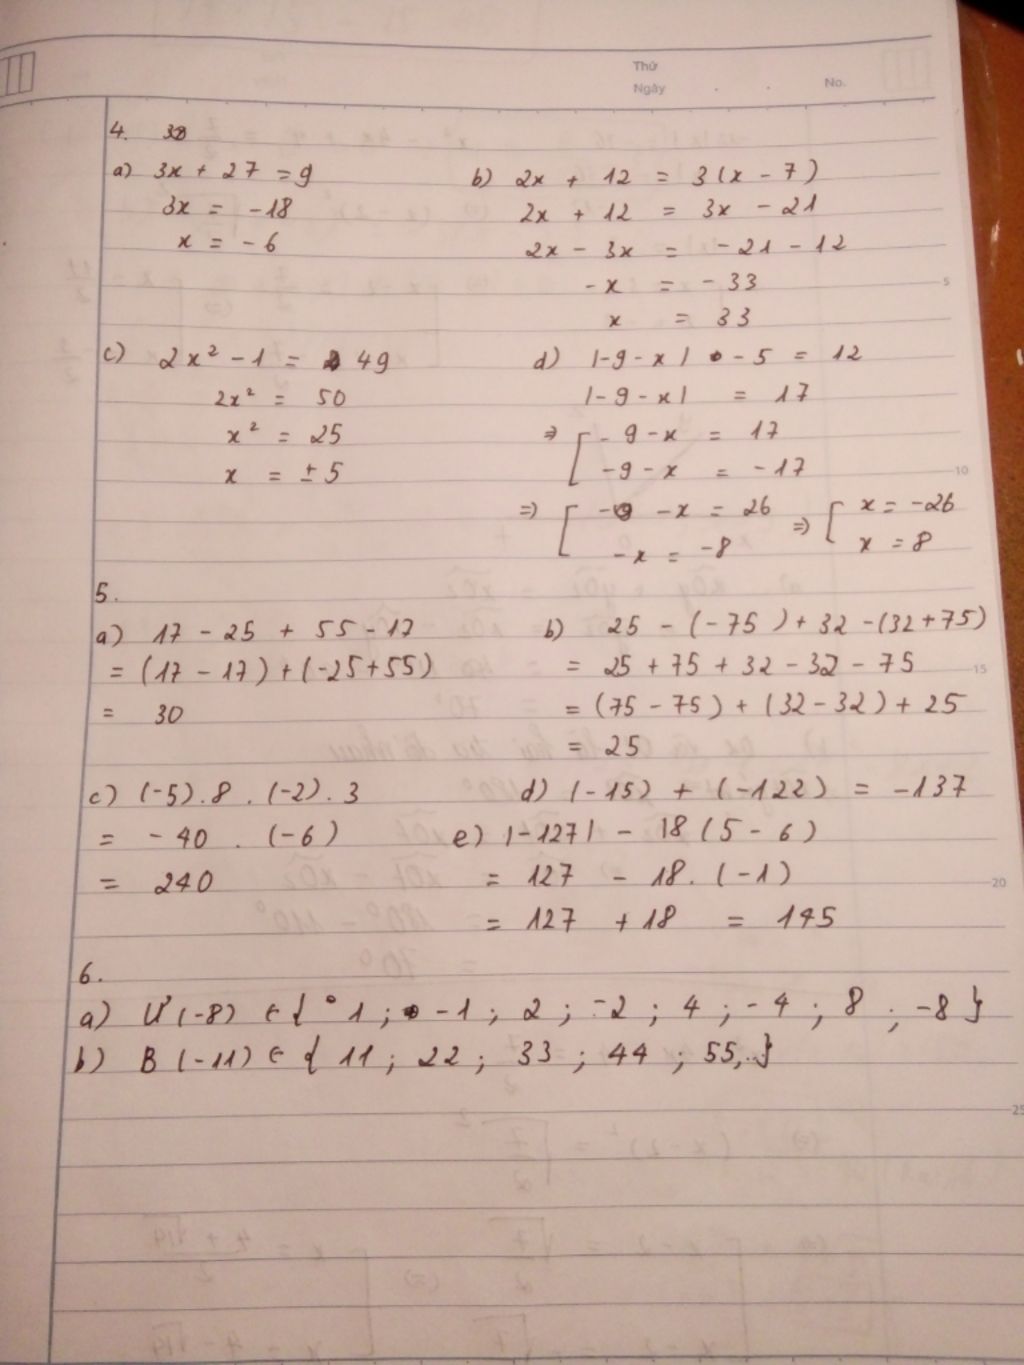 Thứ
Ngày . . No.
4.
a) 3x + 27 = 9
3x = -18
x = -6
b) 2x + 12 = 3(x - 7)
2x + 12 = 3x - 21
2x - 3x = -21 - 12
-x = -33
x = 33
5
c) 2x² - 1 = 49
2x² = 50
x² = 25
x = ±5
d) |-9-x| - 5 = 12
|-9-x| = 17
=> [ -9-x = 17
-9-x = -17
10
=> [ -x = 26 => [ x = -26
-x = -8 x = 8
5.
a) 17 - 25 + 55 - 17
= (17 - 17) + (-25+55)
= 30
b) 25 - (-75) + 32 - (32+75)
= 25 + 75 + 32 - 32 - 75
15
= (75 - 75) + (32 - 32) + 25
= 25
c) (-5).8 . (-2).3
= -40 . (-6)
= 240
d) (-15) + (-122) = -137
e) |-127| - 18(5 - 6)
= 127 - 18.(-1)
20
= 127 + 18 = 145
6.
a) Ư(-8) ∈ { 1 ; -1 ; 2 ; -2 ; 4 ; -4 ; 8 ; -8 }
b) B(-11) ∈ { 11 ; 22 ; 33 ; 44 ; 55,..}
25